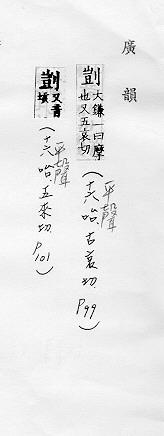 廣韻
剴大鎌一曰摩也又五哀切(平聲十六咍古哀切P99)
剴又音塏(平聲十六咍五來切P101)